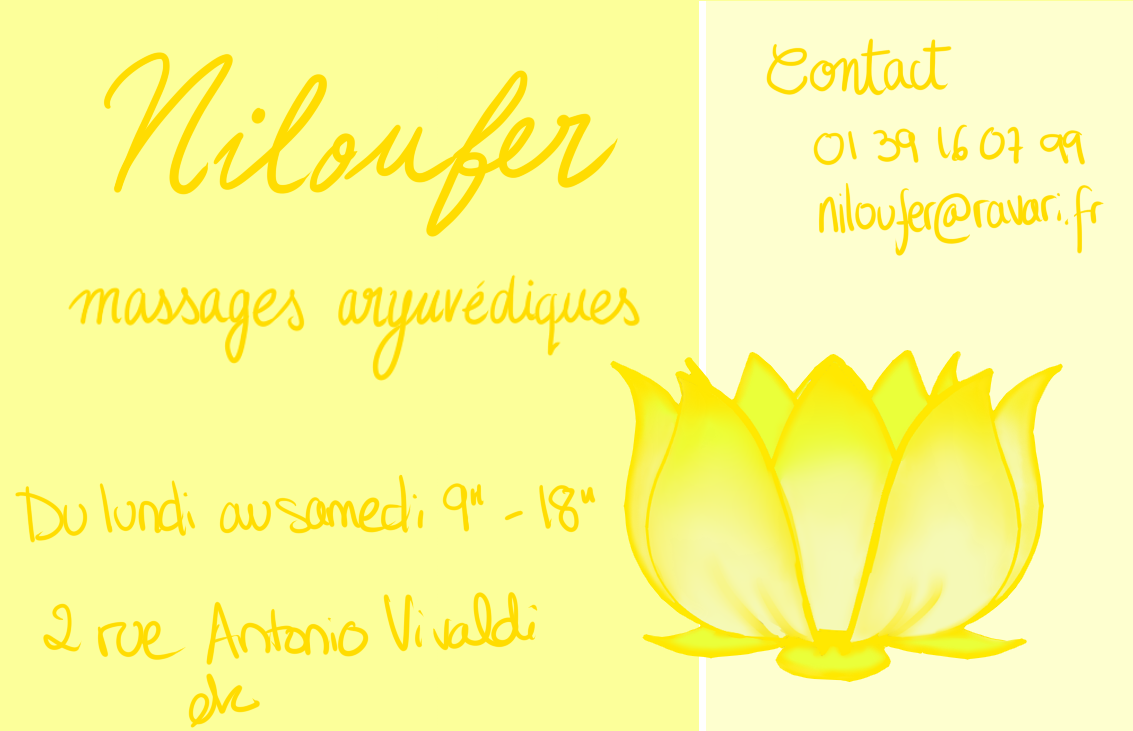 Niloufer
massages aryuvédiques
Du lundi au samedi 9H - 18H
2 rue Antonio Vivaldi
Contact
01 39 16 07 99
niloufer@ravari.fr